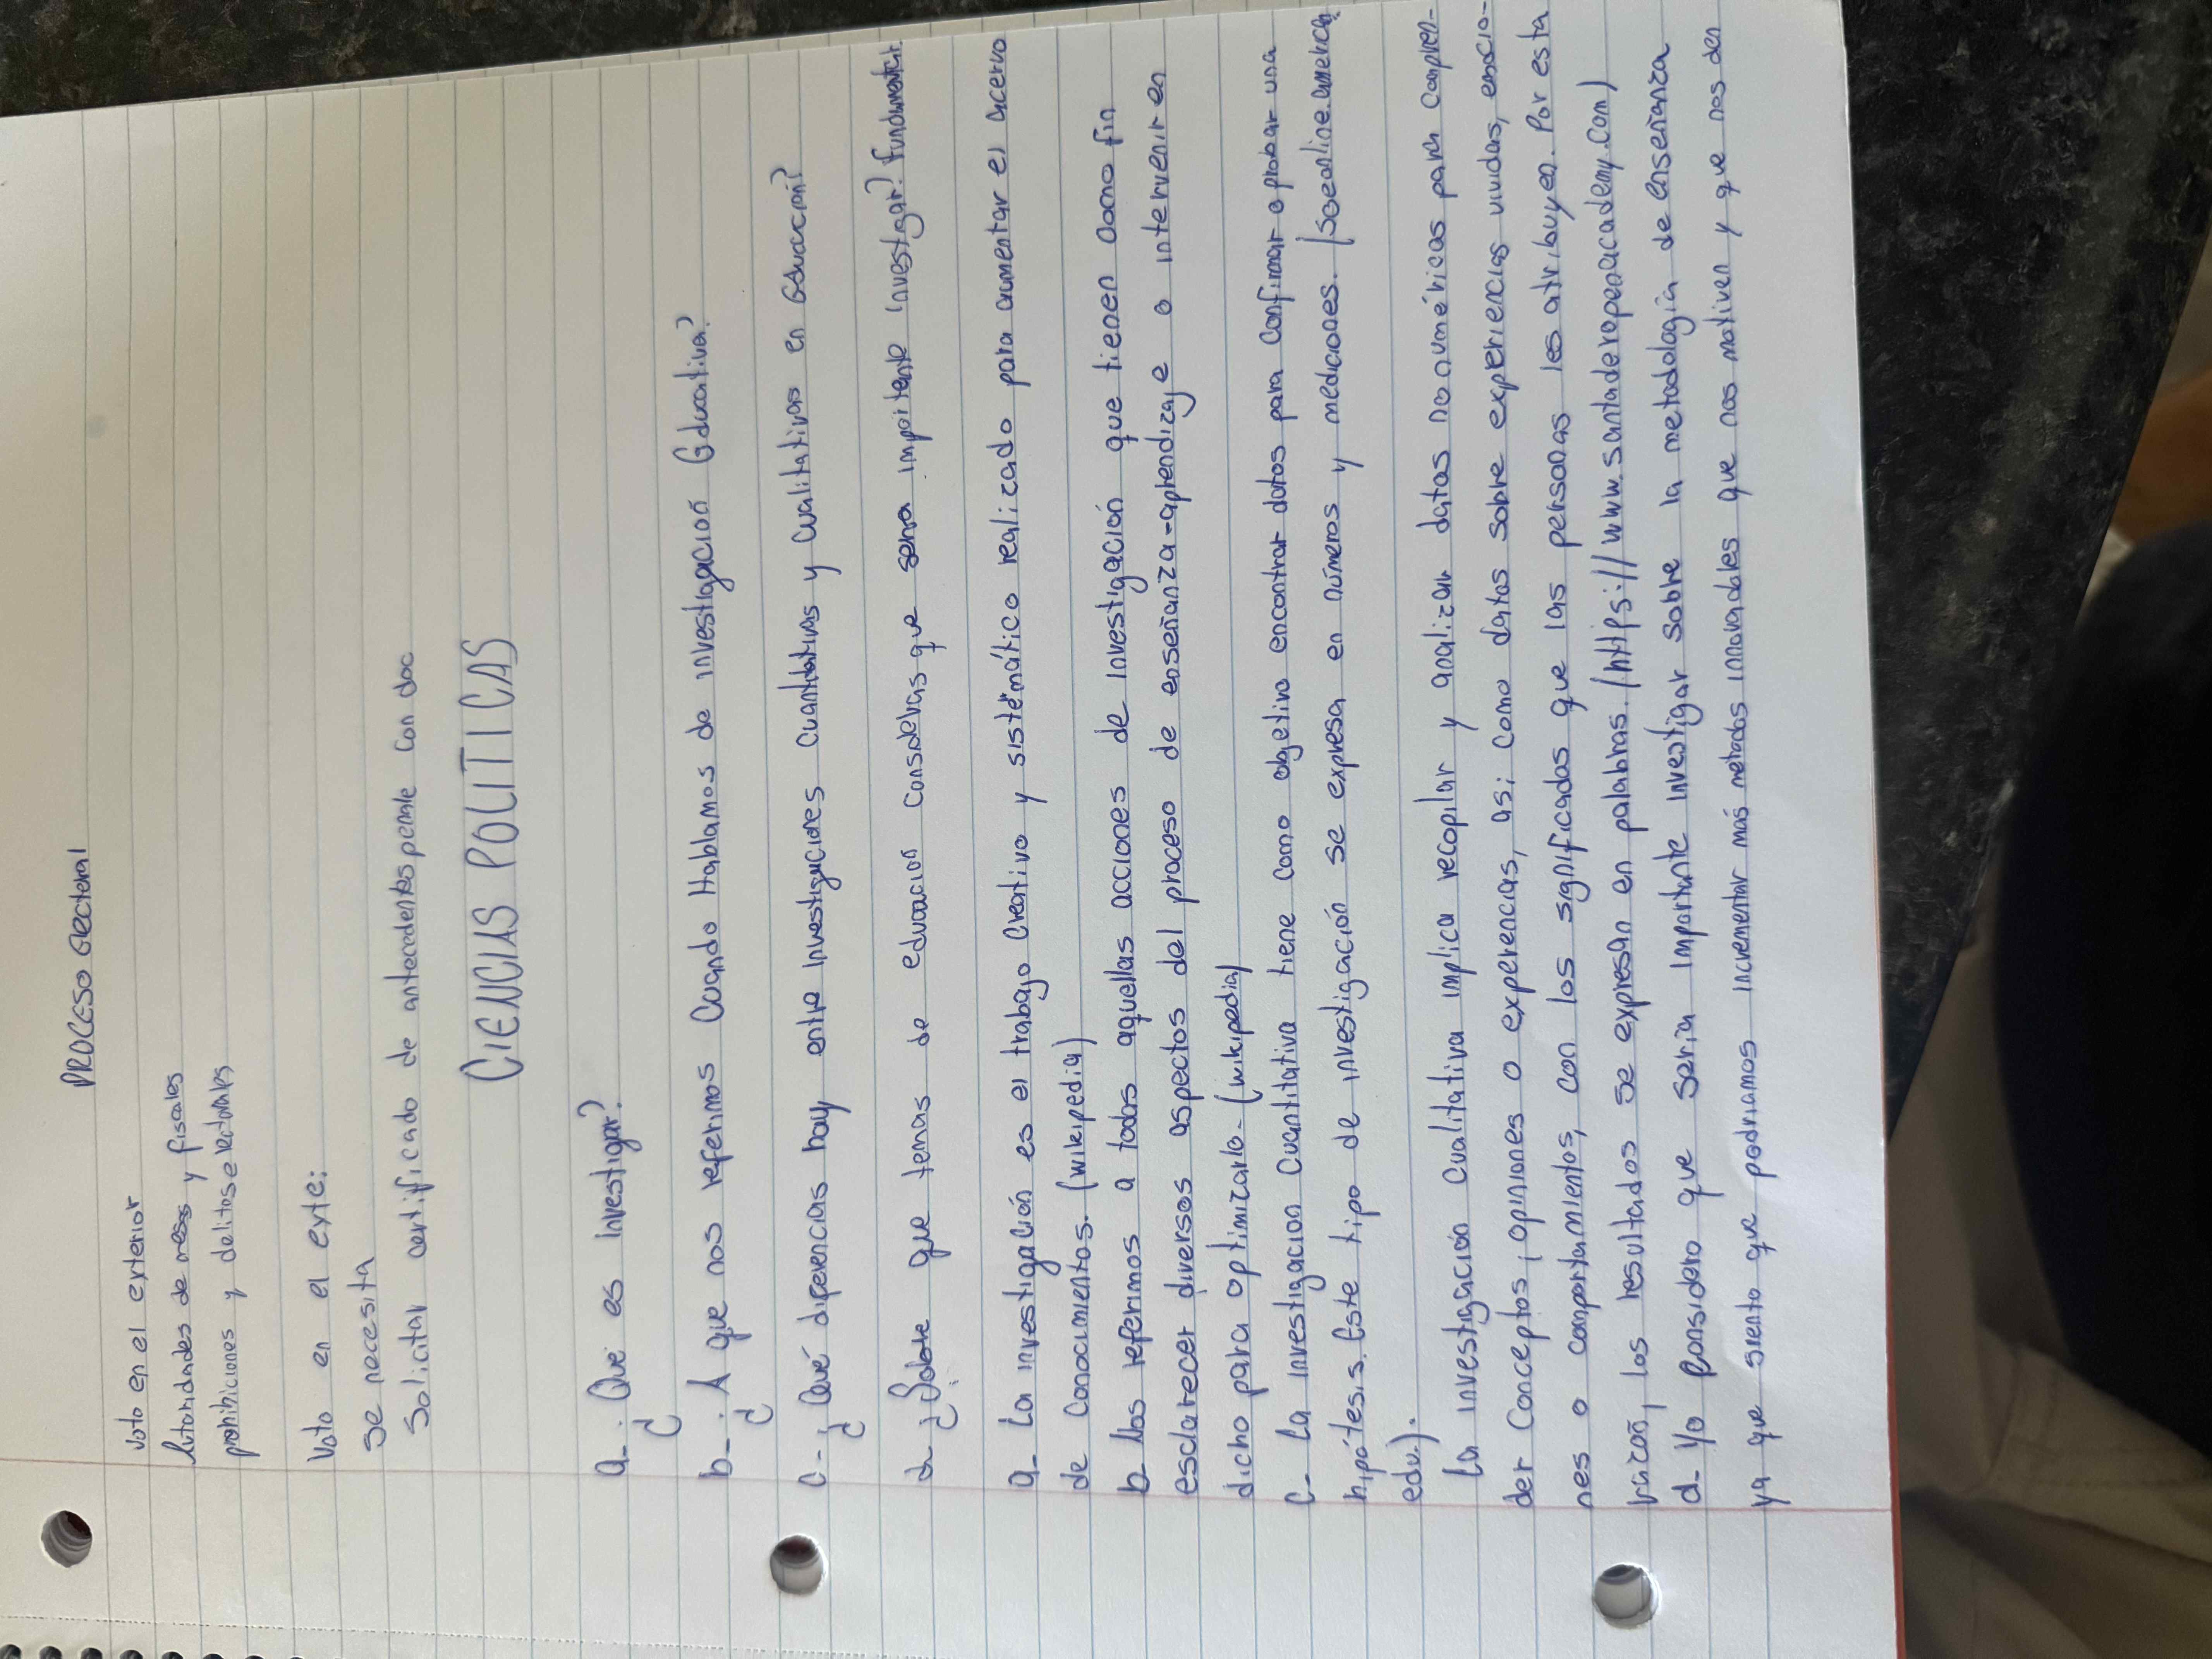 PROCESO electoral
voto en el exterior
Autoridades de mesas y fiscales
prohibiciones y delitos electorales
Voto en el exte:
se necesita
Solicitar certificado de antecedentes penale con doc
CIENCIAS POLITICAS
a-¿Qué es investigar?
b-¿A que nos referimos Cuando Hablamos de investigación Educativa?
c-¿Qué diferencias hay entre investigaciones Cuantitativas y Cualitativas en Educación?
d-¿Sobre que temas de educación consideras que seria importante investigar? Fundamentar.
a- La investigación es el trabajo Creativo y sistemático realizado para aumentar el acervo
de Conocimientos. (wikipedia)
b- Nos referimos a todas aquellas acciones de investigación que tienen como fin
esclarecer diversos aspectos del proceso de enseñanza-aprendizaje o intervenir en
dicho para optimizarlo- (wikipedia)
c- La investigacion Cuantitativa tiene como objetivo encontrar datos para confirmar o probar una
hipótesis. Este tipo de investigación se expresa en números y mediciones. (soeonline.american.
edu).
La investigación cualitativa implica recopilar y analizar datos no numéricos para compren-
der Conceptos, opiniones o experencias, asi como datos sobre experiencias vividas, emocio-
nes o comportamientos, con los significados que las personas les atribuyen. Por esta
razón, los resultados se expresan en palabras. (https://www.santanderopenacademy.com)
d- Yo Considero que seria importante investigar sobre la metodologia de enseñanza
ya que siento que podriamos incrementar más metodos innovadoles que nos motiven y que nos den